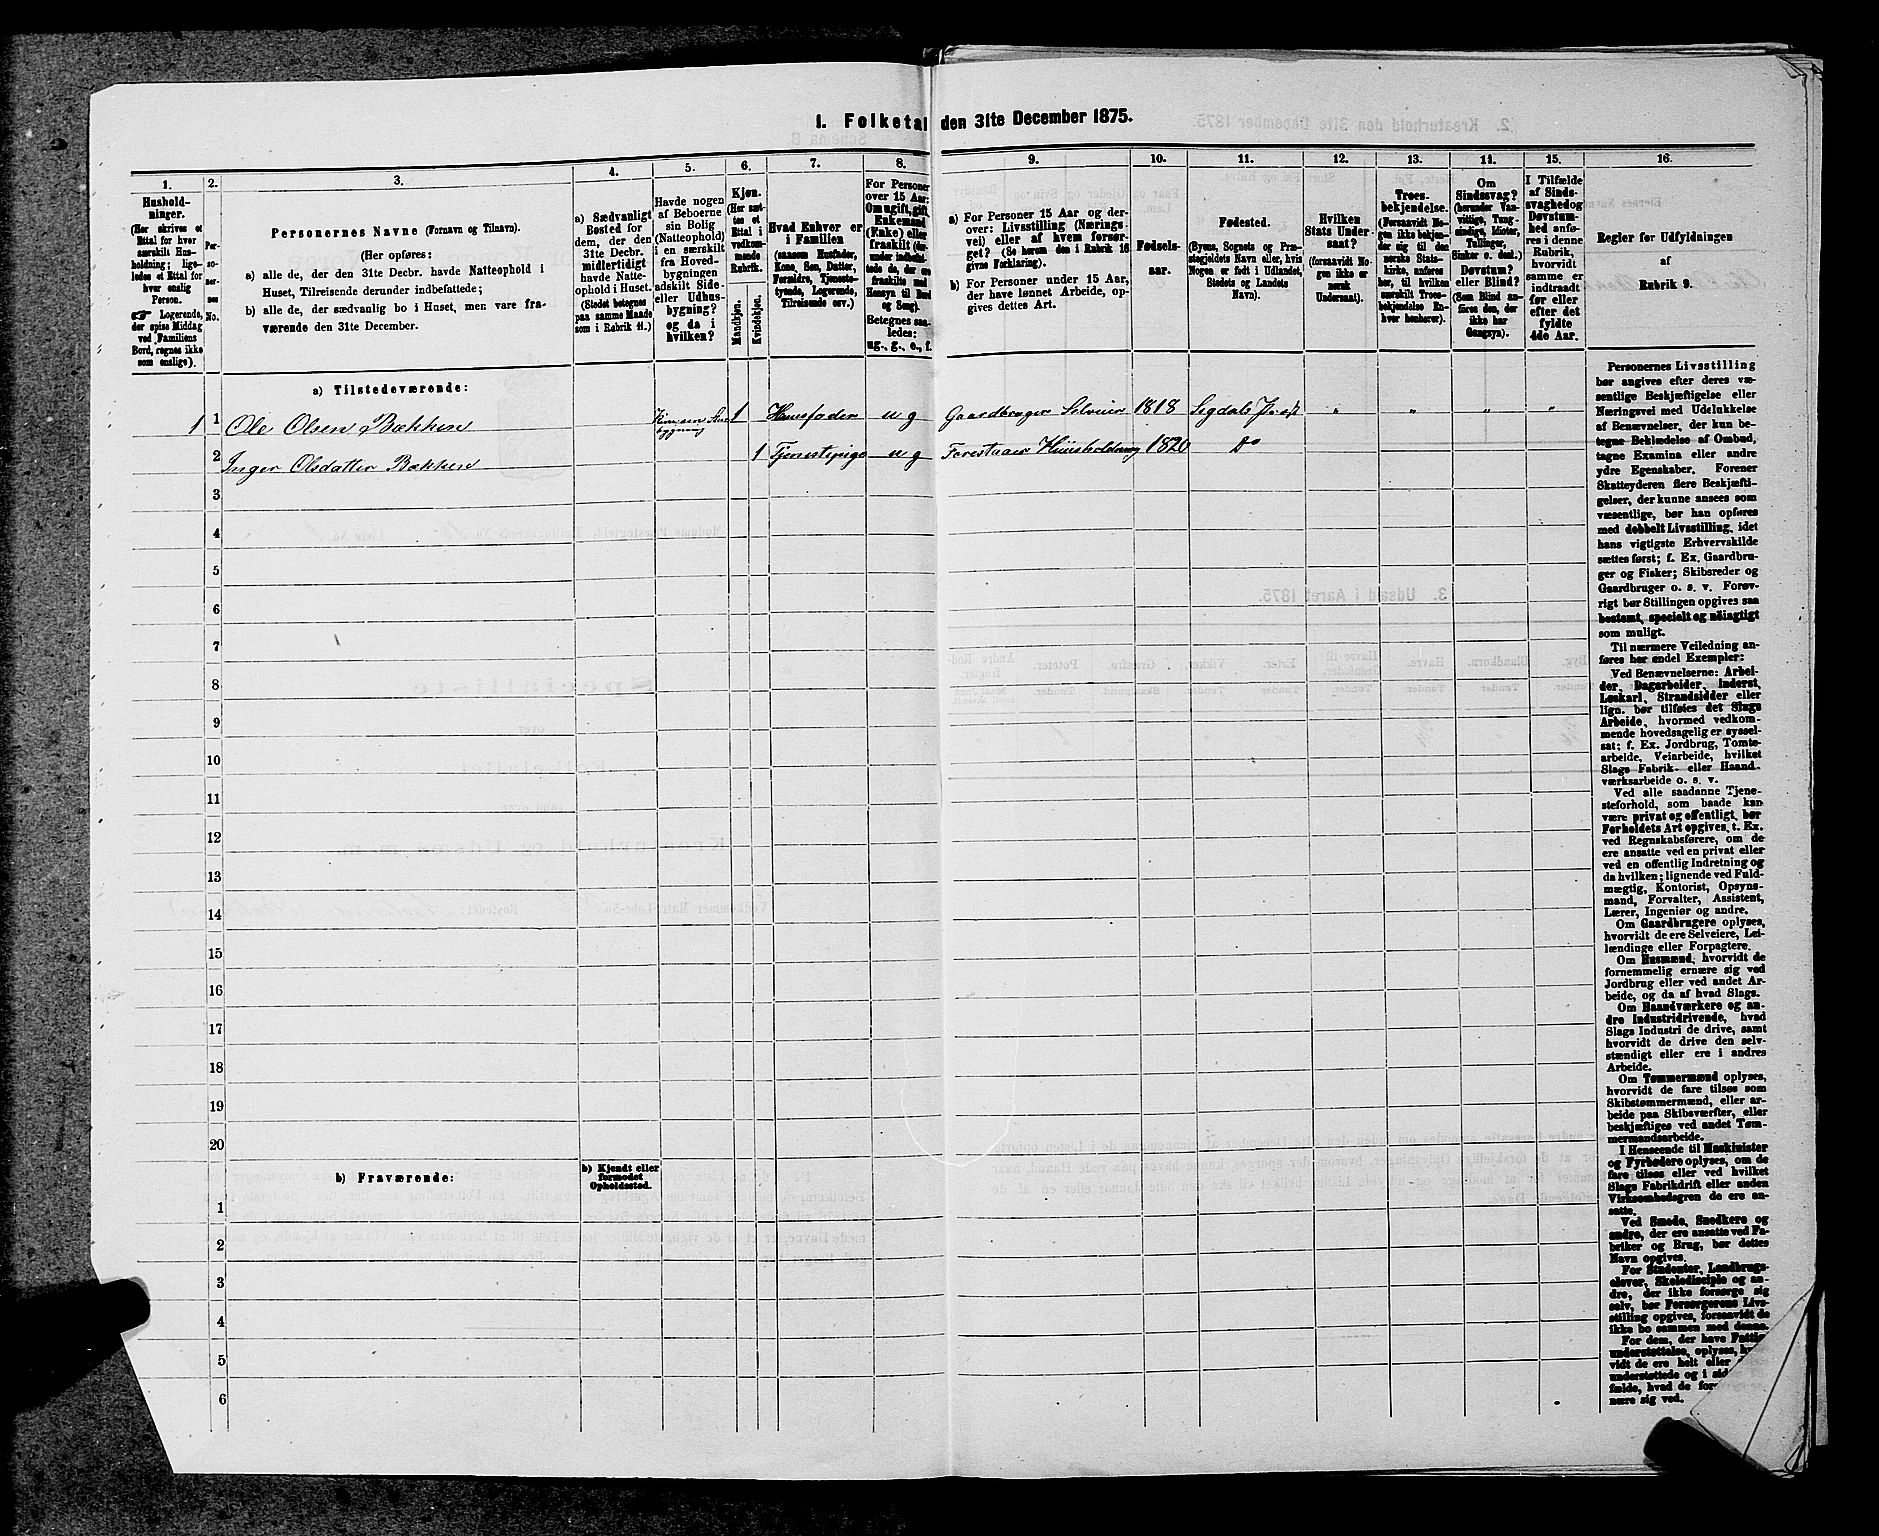 1. Folketal den 31te December 1875.
1. 2. 3. 4. 5. 6. 7. 8. 9. 10. 11. 12. 13. 14. 15. 16.
Hushold-
ninger.
(Her skrives et
Ettal for hver
særskilt Hus-
holdning; lige-
ledes et Ettal
for enslig
Person.
Logerende,
der spise Middag
ved Familiens
Bord, regnes ikke
som enslige).
Per-
so-
ner-
nes
No.
Personernes Navne (Fornavn og Tilnavn).
(Her opføres:
a) alle de, der den 31te Decbr. havde Natteophold i
Huset, Tilreisende derunder indbefattede;
b) alle de, der sædvanlig bo i Huset, men vare fra-
værende den 31te December.
a) Sædvanligt
Bosted for
dem, der den
31te Decbr.
midlertidigt
havde Natte-
ophold i Huset.
(Stedet betegnes
paa samme Maade
som i Rubrik 11.)
Havde nogen
af Beboerne
sin Bolig
(Natteophold)
i en særskilt
fra Hoved-
bygningen
adskilt Side-
eller Udhus-
bygning?
og da i
hvilken?
Kjøn.
(Her sæt-
tes et
Ettal i
vedkom-
mende
Rubrik.
Mandkjøn.
Kvindekjøn.
Hvad Enhver er
i Familien
(saasom Husfader,
Kone, Søn, Datter,
Forældre, Tjeneste-
tyende, Logerende,
Tilreisende osv.)
For Personer
over 15 Aar:
Om ugift, gift,
Enkemand
(Enke) eller
fraskilt (der-
under indbefat-
tede de, der ere
fraskilte med
Hensyn til Bord
og Seng).
Betegnes saa-
ledes:
ug., g., e., f.
a) For Personer 15 Aar og der-
over: Livsstilling (Nærings-
vei) eller af hvem forsør-
get? (Se herom den i Rubrik 16
givne Forklaring).
b) For Personer under 15 Aar,
der have lønnet Arbeide, op-
gives dettes Art.
Fødsels-
aar.
Fødested.
(Byens, Sognets og Præ-
stegjeldets Navn eller, hvis
Nogen er født i Udlandet,
Stedets og Landets
Navn).
Hvilken
Stats Under-
saat?
(forsaavidt No-
gen ikke er
norsk
Undersaat).
Troes-
bekjendelse.
(Forsaavidt No-
gen ikke bekjen-
der sig til den
norske Stats-
kirke, anføres
her, til hvilken
særskilt Troes-
bekjendelse En-
hver henhører).
Om
Sindssvag?
(herunder Van-
vittige, Tung-
sindige, Idioter,
Tullinger,
Sinker o. desl.)
Døvstum?
eller Blind?
(Som Blind an-
føres den, der
ikke har
Gangsyn).
I Tilfælde
af Sinds-
svaghed og
Døvstum-
hed anfø-
res i denne
Rubrik,
hvorvidt
samme er
indtraadt
før eller
efter det
fyldte
4de Aar.
Regler for Udfyldningen
af
Rubrik 9.
a) Tilstedeværende:
1 1 Ole Olsen Bækken 1 Huusfader ug Gaardbruger Selveier 1818 Sigdals Præst " " " "
2 Inger Olsdatter Bækken 1 Tjenestpige ug Forestaaer Huusholdning 1820 Do
3
4
5
6
7
8
9
10
11
12
13
14
15
16
17
18
19
20
b) Fraværende:
b) Kjendt eller
formodet
Opholdssted.
1
2
3
4
5
6
Personernes Livsstilling
bør angives efter deres væ-
sentlige Beskjæftigelse eller
Næringsvei med Udelukkelse
af Benævnelser, der kun be-
tegne Beklædelse af Ombud,
tagne Examina eller andre
ydre Egenskaber. Forener
Skatteyderen flere Beskjæfti-
gelser, der kunne ansees som
væsentlige, bør han opføres
med dobbelt Livsstilling, idet
hans vigtigste Erhvervskilde
sættes først; f. Ex. Gaardbru-
ger og Fisker; Skibsreder og
Gaardbruger o. s. v. Forøv-
rigt bør Stillingen opgives saa
bestemt, specielt og nøiagtigt
som muligt.
Til nærmere Veiledning an-
føres her endel Exempler:
Ved Benævnelserne: Arbei-
der, Dagarbeider, Inderst,
Løskarl, Strandsidder eller
lign. bør tilføies det Slags
Arbeide, hvormed vedkom-
mende hovedsagelig er syssel-
sat; f. Ex. Jordbrug, Tomte-
arbeide, Veiarbeide, hvilket
Slags Fabrik- eller Haand-
værksarbeide o. s. v.
Ved alle saadanne Tjene-
steforhold, som baade kan
være privat og offentligt, bør
Forholdets Art opgives, t. Ex.
ved Regnskabsførere, om de
ere ansatte ved en privat eller
ved en offentlig Indretning og
da hvilken; lignende ved Fuld-
mægtig, Kontorist, Opsyns-
mand, Forvalter, Assistent,
Lærer, Ingeniør og andre.
Om Gaardbrugere oplyses,
hvorvidt de ere Selveiere, Lei-
lændinge eller Forpagtere.
Om Husmænd, hvorvidt de
fornemmelig ernære sig ved
Jordbrug eller ved andet Ar-
beide, og da af hvad Slags.
Om Haandværkere og an-
dre Industridrivende, hvad
Slags Industri de drive, samt
hvorvidt de drive den selv-
stændigt eller ere i andres
Arbeide.
Om Tømmermænd oplyses,
hvorvidt de fare tilsøs som
Skibstømmermænd, eller ar-
beide paa Skibsværfter, eller
beskjæftiges ved andet Tøm-
mermandsarbeide.
I Henseende til Maskinister
og Fyrbødere oplyses, om de
fare tilsøs eller ved hvilket
Slags Fabrikdrift eller anden
Virksomhedsgren de ere an-
satte.
Ved Smede, Snedkere og
andre, der ere ansatte ved Fa-
briker og Brug, bør dettes
Navn opgives.
For Studenter, Landbrugs-
elever, Skoledisciple og an-
dre, der ikke forsørge sig
selv, bør Forsørgerens Livs-
stilling opgives, forsaavidt de
ikke bo sammen med denne.
For dem, der have Fattig-
understøttelse, oplyses,
vidt de ere helt eller
understøttede og i
fælde, hvad de
nære sig ved.